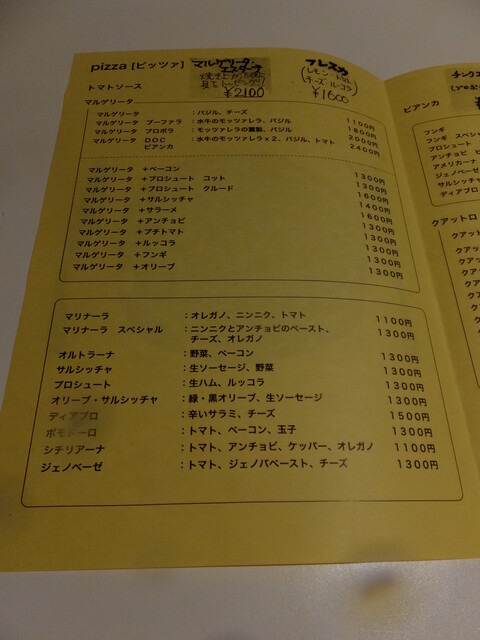 pizza [ピッツァ]
マルゲリータ
エスターテ
¥2100
フレスカ
レモン
チーズ ルーコラ
¥1600
トマトソース
マルゲリータ
マルゲリータ ：バジル、チーズ 1100円
マルゲリータ ブーファラ ：水牛のモッツァレラ、バジル 1800円
マルゲリータ プロボラ ：モッツァレラの薫製、バジル 2000円
マルゲリータ DOC ：水牛のモッツァレラｘ２、バジル、トマト 2400円
ビアンカ
マルゲリータ ＋ベーコン 1300円
マルゲリータ ＋プロシュート コット 1300円
マルゲリータ ＋プロシュート クルード 1600円
マルゲリータ ＋サルシッチャ 1400円
マルゲリータ ＋サラーメ 1600円
マルゲリータ ＋アンチョビ 1300円
マルゲリータ ＋プチトマト 1300円
マルゲリータ ＋ルッコラ 1300円
マルゲリータ ＋フンギ 1300円
マルゲリータ ＋オリーブ 1300円
マリナーラ ：オレガノ、ニンニク、トマト 1100円
マリナーラ スペシャル ：ニンニクとアンチョビのペースト、 1300円
チーズ、オレガノ
オルトラーナ ：野菜、ベーコン 1300円
サルシッチャ ：生ソーセージ、野菜 1300円
プロシュート ：生ハム、ルッコラ 1300円
オリーブ・サルシッチャ ：緑・黒オリーブ、生ソーセージ 1300円
ディアブロ ：辛いサラミ、チーズ 1500円
ポモドーロ ：トマト、ベーコン、玉子 1300円
シチリアーナ ：トマト、アンチョビ、ケッパー、オレガノ 1100円
ジェノベーゼ ：トマト、ジェノバペースト、チーズ 1300円
ビアンカ
フンギ
フンギ スペシ
プロシュート
アンチョビ
アメリカーナ
ジェノベーゼ
サルシッチャ
ディアブロ
クアットロ
クアット
クアッ
クア
クア
クア
ク
ク